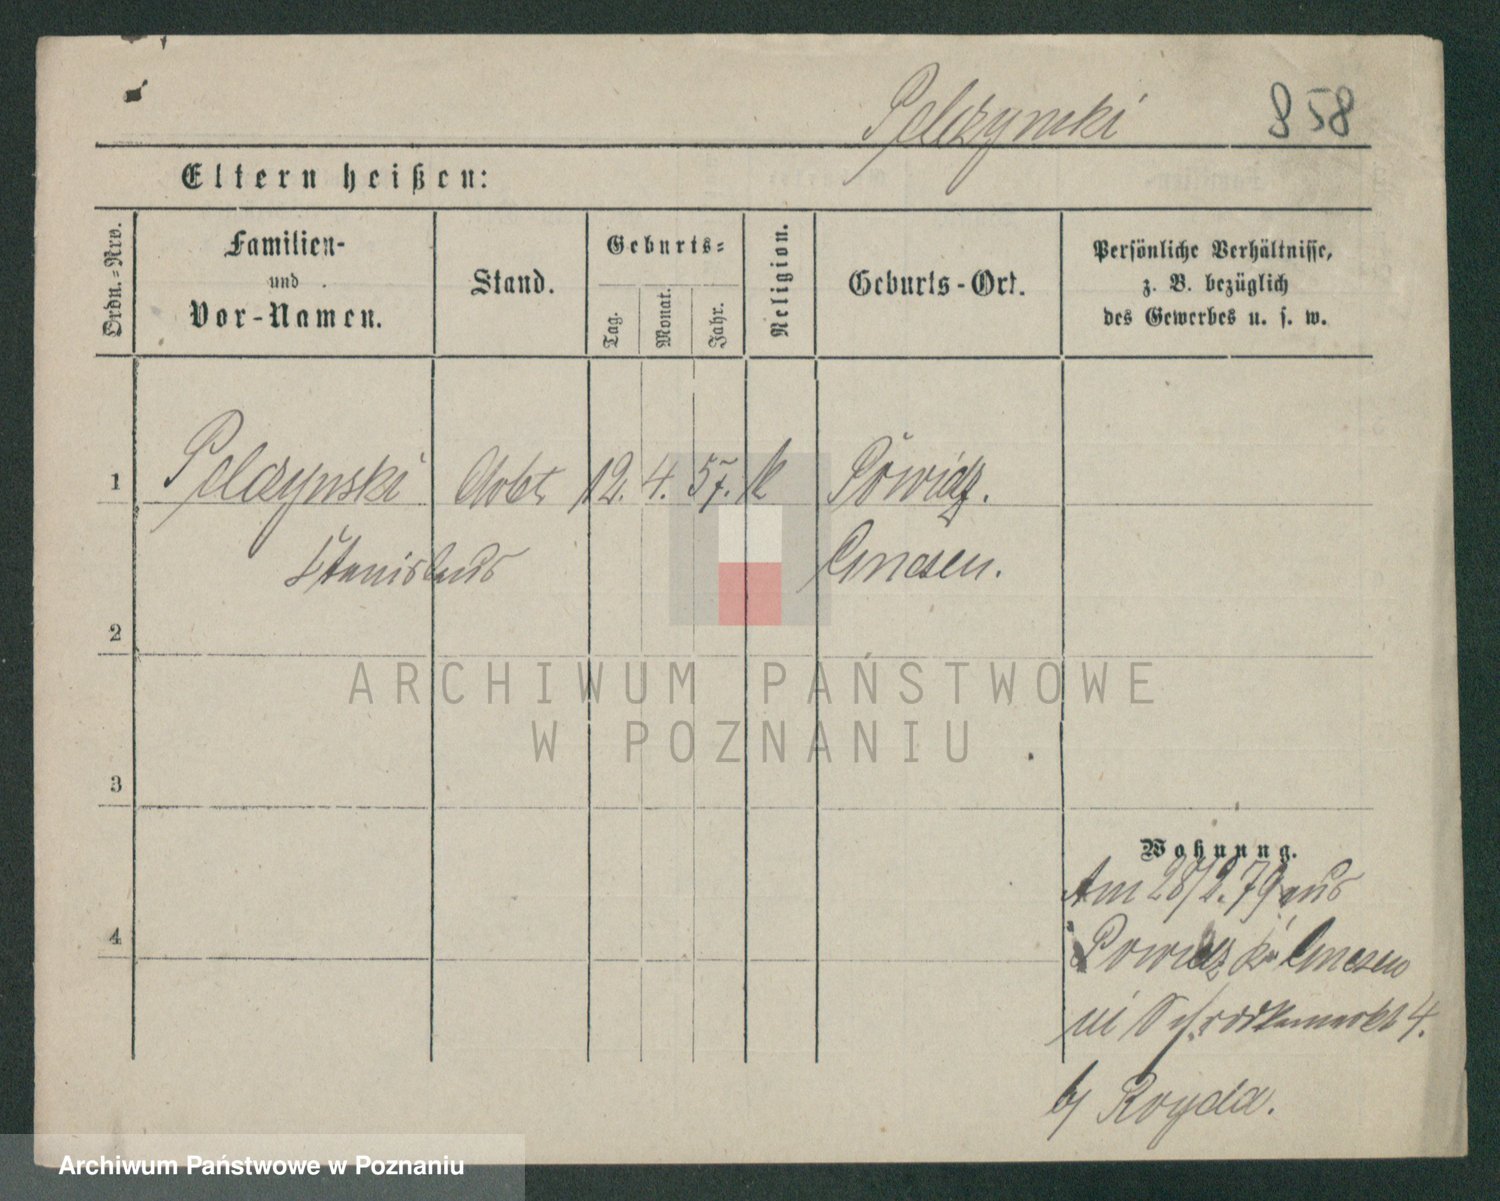 Pelczynski 858
Eltern heißen:
Ordn.-Nro.
Familien-
und
Vor-Namen.
Stand.
Geburts-
Tag.
Monat.
Jahr.
Religion.
Geburts-Ort.
Persönliche Verhältnisse,
z. B. bezüglich
des Gewerbes u. s. w.
1 Pelczynski Arbt 12. 4. 57. k Powidz.
Stanislaus Gnesen.
2
ARCHIWUM PAŃSTWOWE
W POZNANIU
3
Wohnung.
Am 28/2. 79 aus
4 Powidz Kr Gnesen
Schrodkamarkt 4.
b/ Royda.
Archiwum Państwowe w Poznaniu